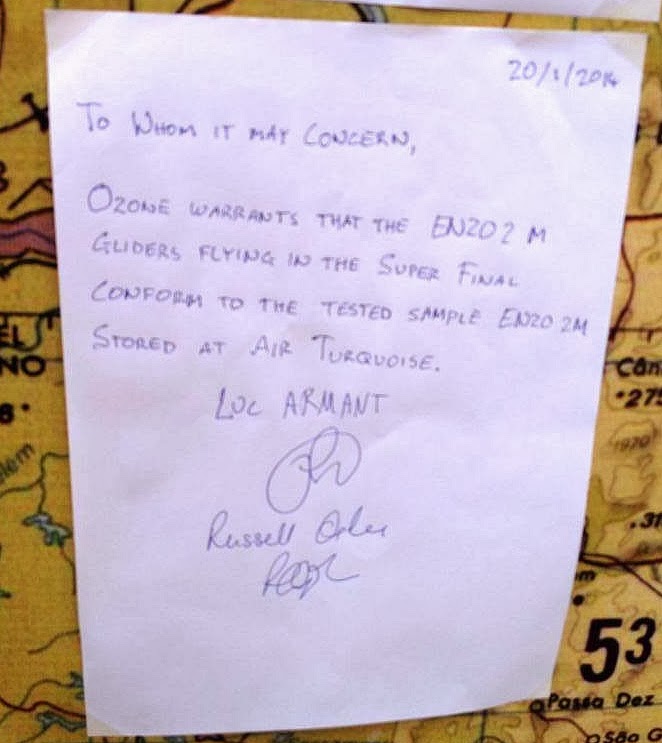 20/1/2014
To Whom it may Concern,
Ozone warrants that the ENZO 2 M
Gliders flying in the Super Final
conform to the tested sample ENZO 2M
Stored at Air Turquoise.
Luc ARMANT
Russell Ogden
EL
NO
8
lem
Cân
275
1970
.31
m
53
Passa Dez
São G